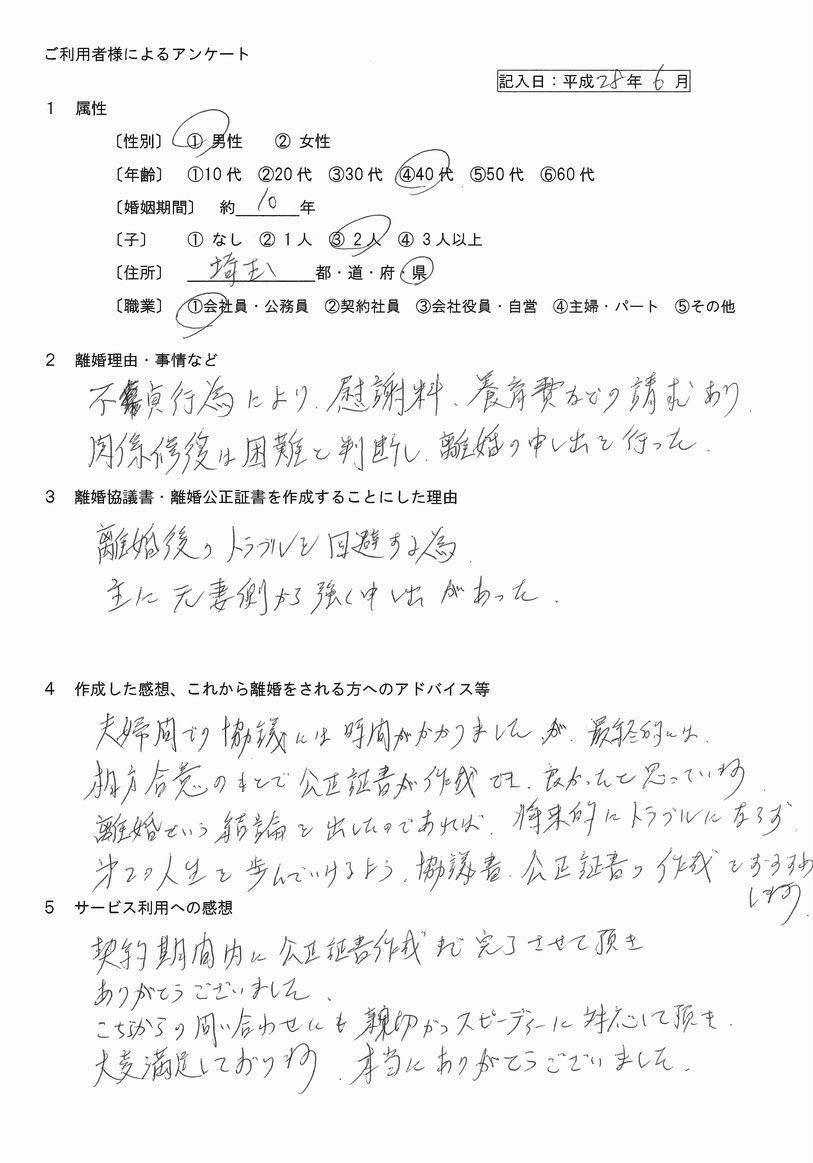 ご利用者様によるアンケート
記入日：平成28年 6月
1 属性
〔性別〕 ① 男性 ② 女性
〔年齢〕 ①10代 ②20代 ③30代 ④40代 ⑤50代 ⑥60代
〔婚姻期間〕 約 10 年
〔子〕 ① なし ② 1人 ③ 2人 ④ 3人以上
〔住所〕 埼玉 都・道・府・県
〔職業〕 ①会社員・公務員 ②契約社員 ③会社役員・自営 ④主婦・パート ⑤その他
2 離婚理由・事情など
不貞行為により、慰謝料、養育費などの請求あり、
関係修復は困難と判断し、離婚の申し出を行った。
3 離婚協議書・離婚公正証書を作成することにした理由
離婚後のトラブルを回避する為。
主に元妻側から強く申し出があった。
4 作成した感想、これから離婚をされる方へのアドバイス等
夫婦間での協議には時間がかかりましたが、最終的には、
相方合意のもとで公正証書が作成でき、良かったと思っています。
離婚という結論を出したのであれば、将来的にトラブルにならず、
第2の人生を歩んでいけるよう、協議書、公正証書の作成をおすすめ
します。
5 サービス利用への感想
契約期間内に公正証書作成まで完了させて頂き
ありがとうございました。
こちらからの問い合わせにも親切かつスピーディーに対応して頂き、
大変満足しております。本当にありがとうございました。